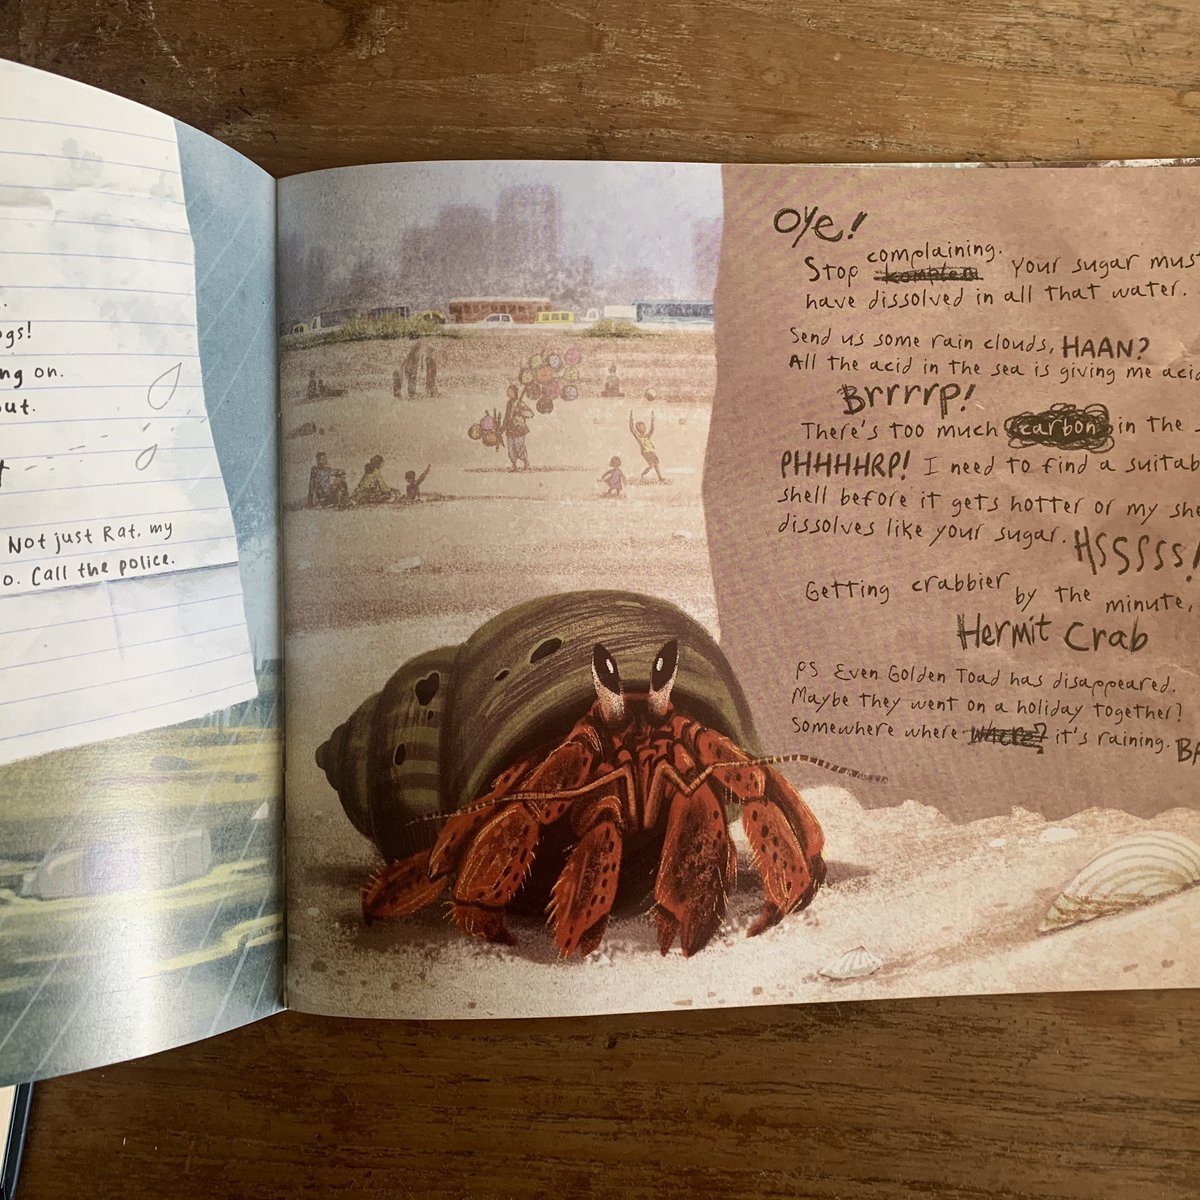 ogs!
ng on.
out.
Not just Rat, my
o. Call the police.
Oye!
Stop complaining. Your sugar must
have dissolved in all that water.
Send us some rain clouds, HAAN?
All the acid in the sea is giving me acid
Brrrrp!
There's too much carbon in the
PHHHHRP! I need to find a suitab
shell before it gets hotter or my she
dissolves like your sugar. HSSSSS!
Getting crabbier by the minute,
Hermit Crab
PS Even Golden Toad has disappeared.
Maybe they went on a holiday together?
Somewhere where where? it's raining. BA